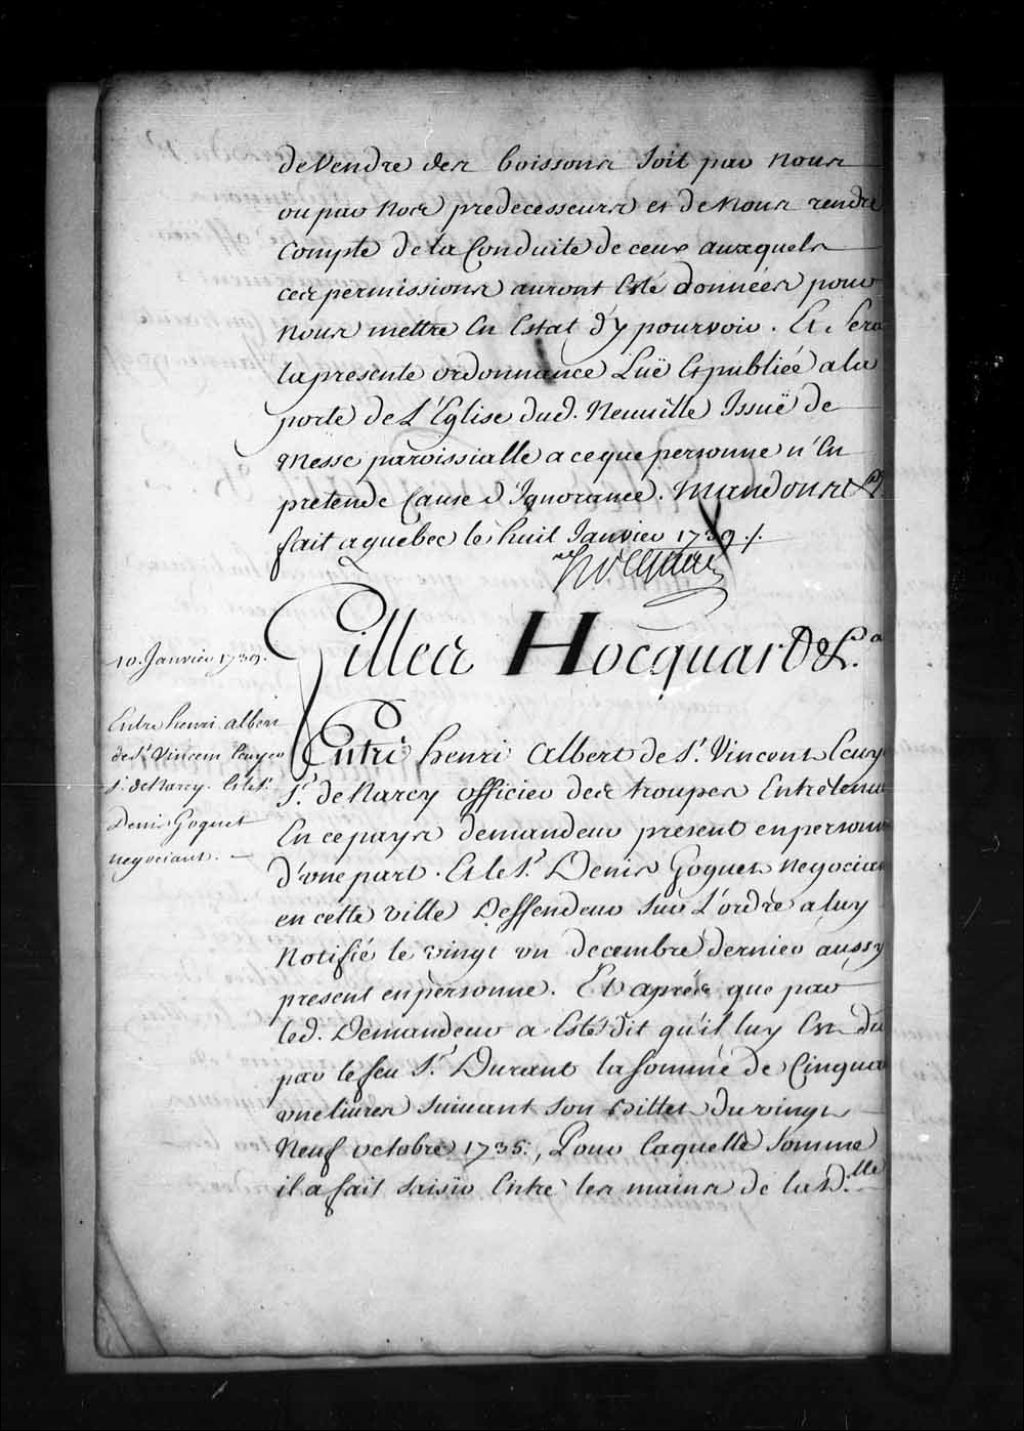 de Vendre des boissons Soit par nous
ou par nos predecesseurs et de Nous rendre
Compte de la Conduite de ceux auxquels
ces permissions auront Esté données pour
nous mettre En Estat d'y pourvoir. Et Sera
la presente ordonnance Luë Et publiée a la
porte de L'Eglise dud. Neuville Issuë de
Messe paroissialle a ce que personne n'En
pretende Cause d'Ignorance. Mandons &c.
fait a quebec le huit Janvier 1739 ./.
Hocquart
Gilles Hocquart &c.a
10. Janvier 1739.
Entre henri albert
de St. Vincent Ecuyer
Sr. de Narcy. Et le Sr.
Denis Goguet
negociant. —
Entre henri Albert de St. Vincent Ecuyer
Sr. de Narcy officier des troupes Entretenues
En ce pays demandeur present en personne
d'une part. Et le Sr. Denis Goguet Negociant
en cette ville Deffendeur Sur L'ordre a luy
Notifié le vingt un decembre dernier aussy
present en personne. Et après que par
led. Demandeur a Esté dit qu'il luy Est du
par le feu Sr. Durant la Somme de Cinquante
une livres Suivant Son Billet du vingt
Neuf octobre 1735., Pour laquelle Somme
il a fait Saisir Entre les mains de la D.lle